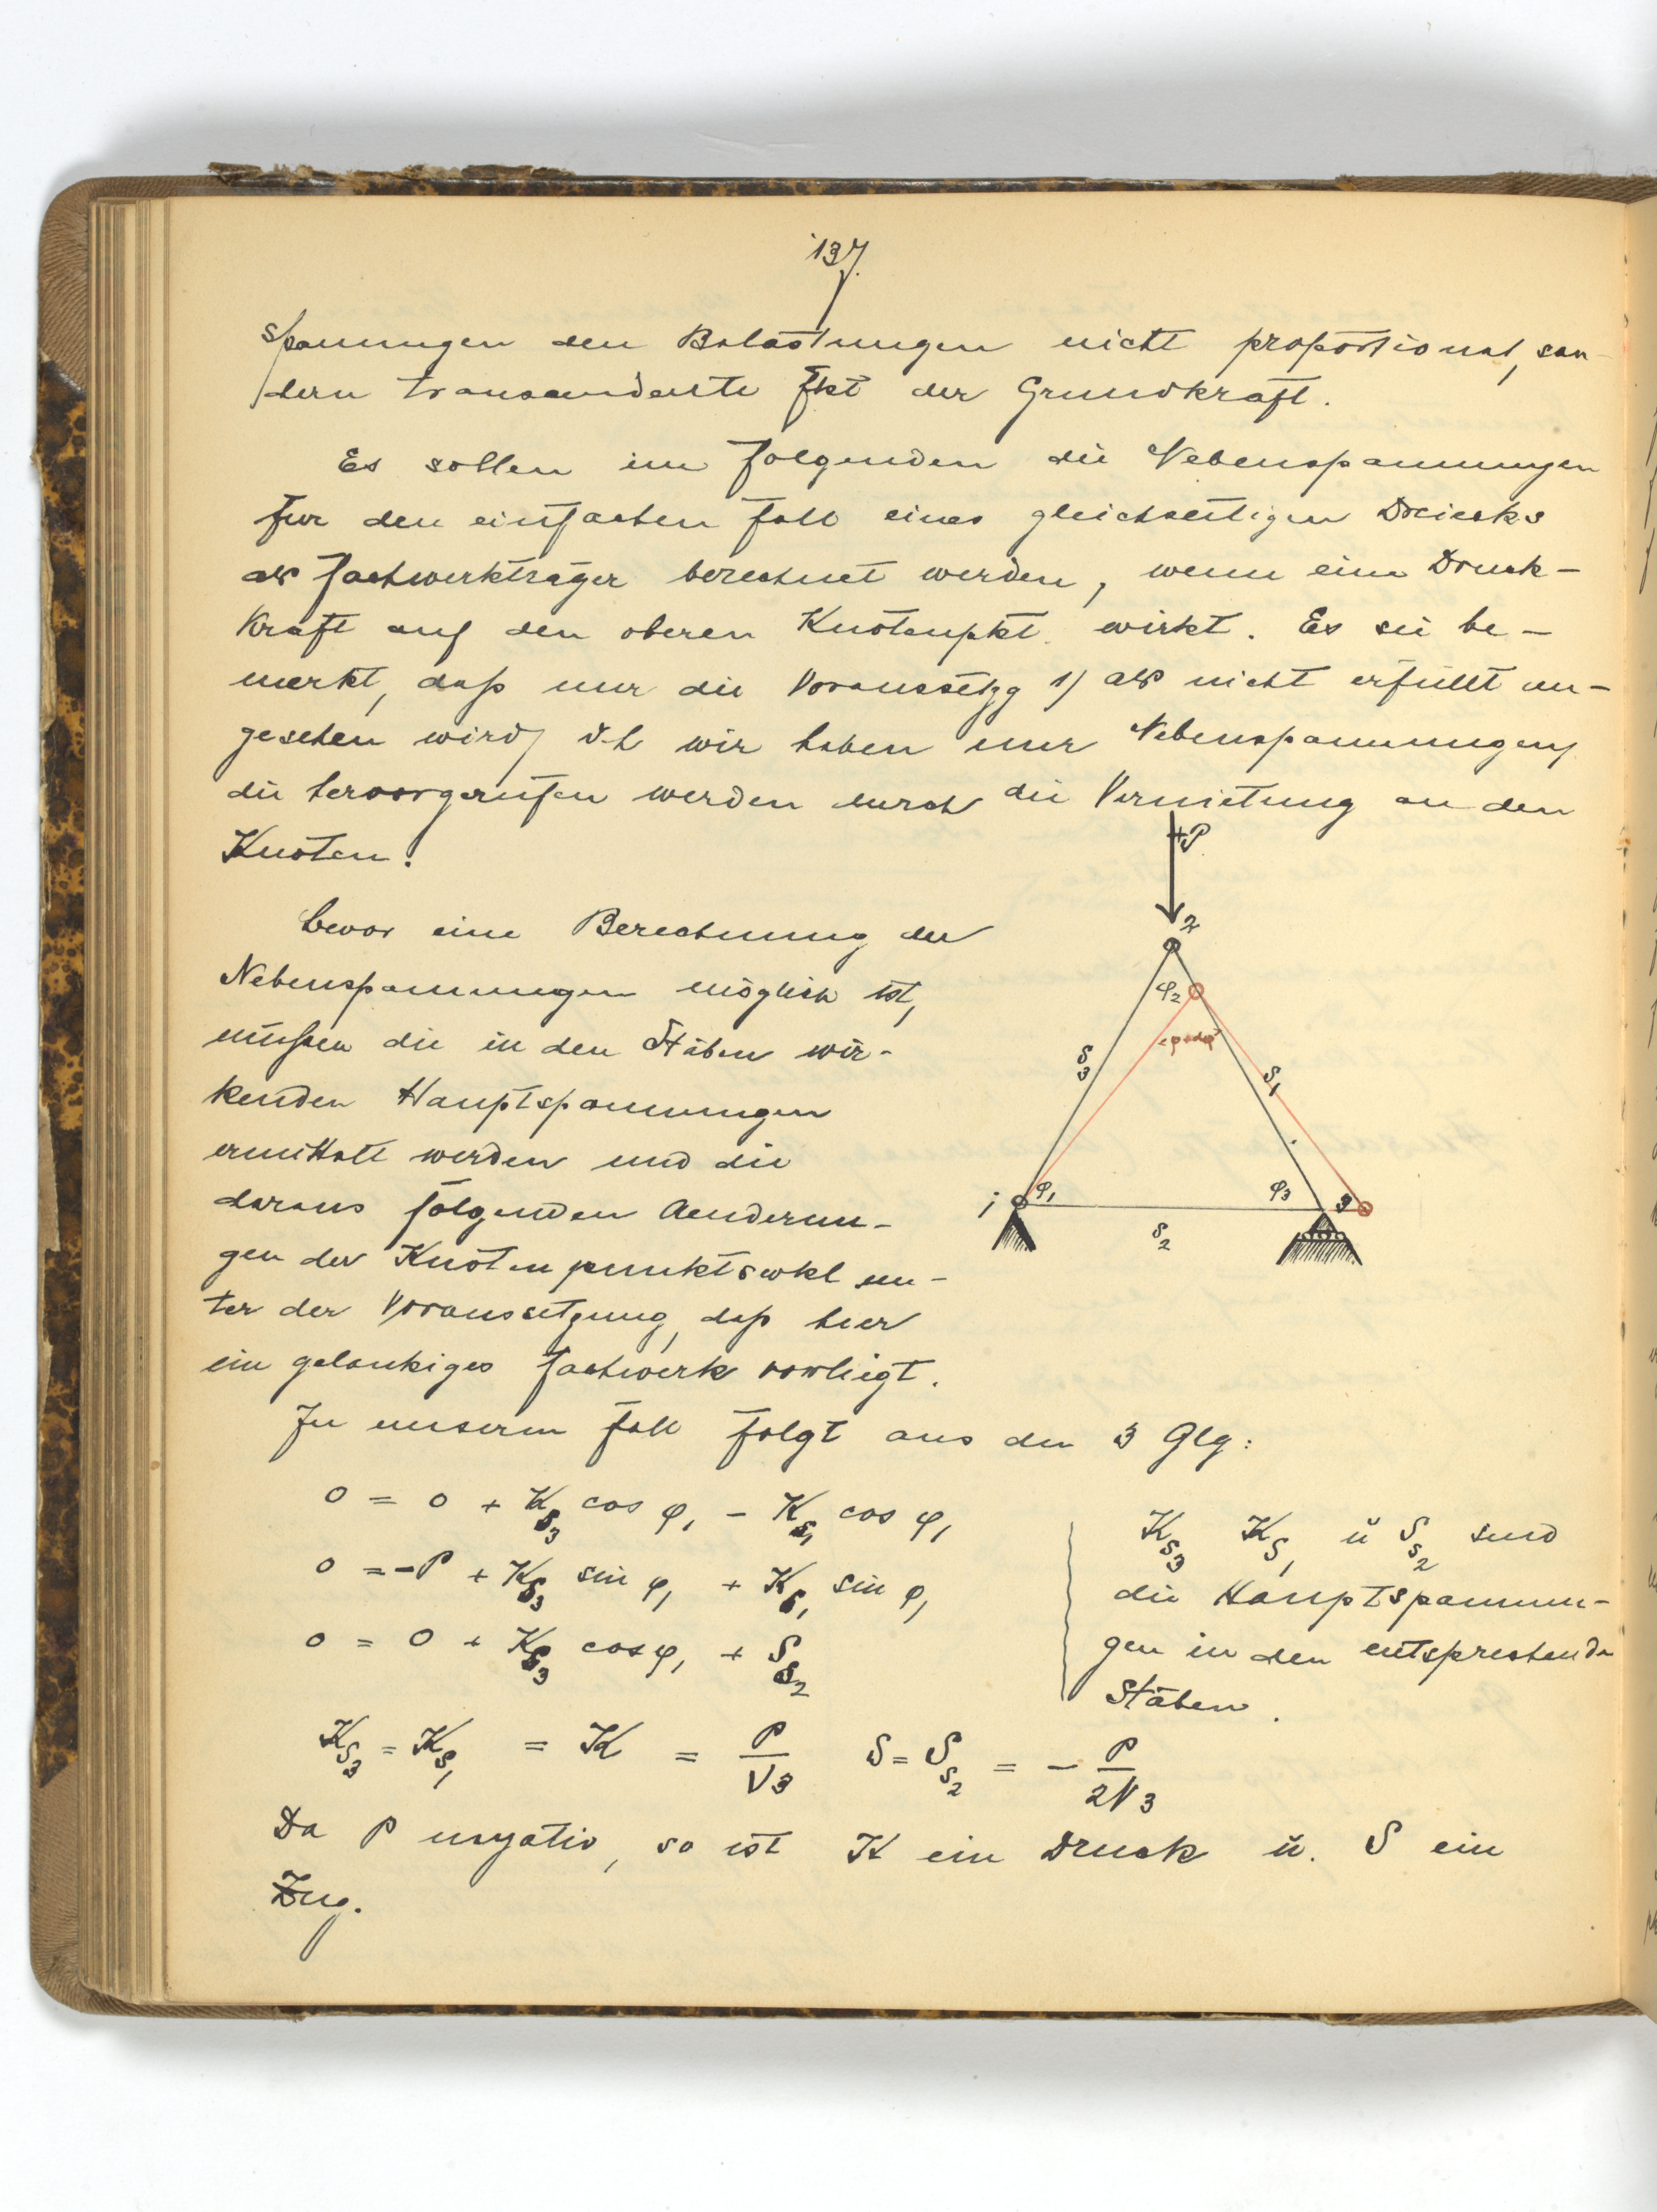 137.
spannungen den Belastungen nicht proportional, son-
dern transcendente Fkt der Grundkraft.
Es sollen im folgenden die Nebenspannungen
für den einfachen Fall eines gleichseitigen Dreiecks
als Fachwerkträger berechnet werden, wenn eine Druck-
kraft auf den oberen Knotenpkt. wirkt. Es sei be-
merkt, daß nur die Voraussetzg 1) als nicht erfüllt an-
gesehen wird, d.h wir haben nur Nebenspannungen,
die hervorgerufen werden durch die Vernietung an den
Knoten.
+P
2
φ₂
S₃
S₁
1
φ₁
φ₃
3
S₂
Bevor eine Berechnung der
Nebenspannungen möglich ist,
müssen die in den Stäben wir-
kenden Hauptspannungen
ermittelt werden und die
daraus folgenden Aenderun-
gen der Knotenpunktswkl un-
ter der Voraussetzung, daß hier
ein gelenkiges Fachwerk vorliegt.
In unserm Fall folgt aus den 3 Glg:
0 = 0 + K_{S₃} cos φ₁ - K_{S₁} cos φ₁
0 = -P + K_{S₃} sin φ₁ + K_{S₁} sin φ₁
0 = 0 + K_{S₃} cos φ₁ + S_{S₂}
K_{S₃} K_{S₁} u S_{S₂} sind
die Hauptspannun-
gen in den entsprechenden
Stäben.
K_{S₃} = K_{S₁} = K = P/√3 S = S_{S₂} = - P/2√3
Da P negativ, so ist K ein Druck u. S ein
Zug.